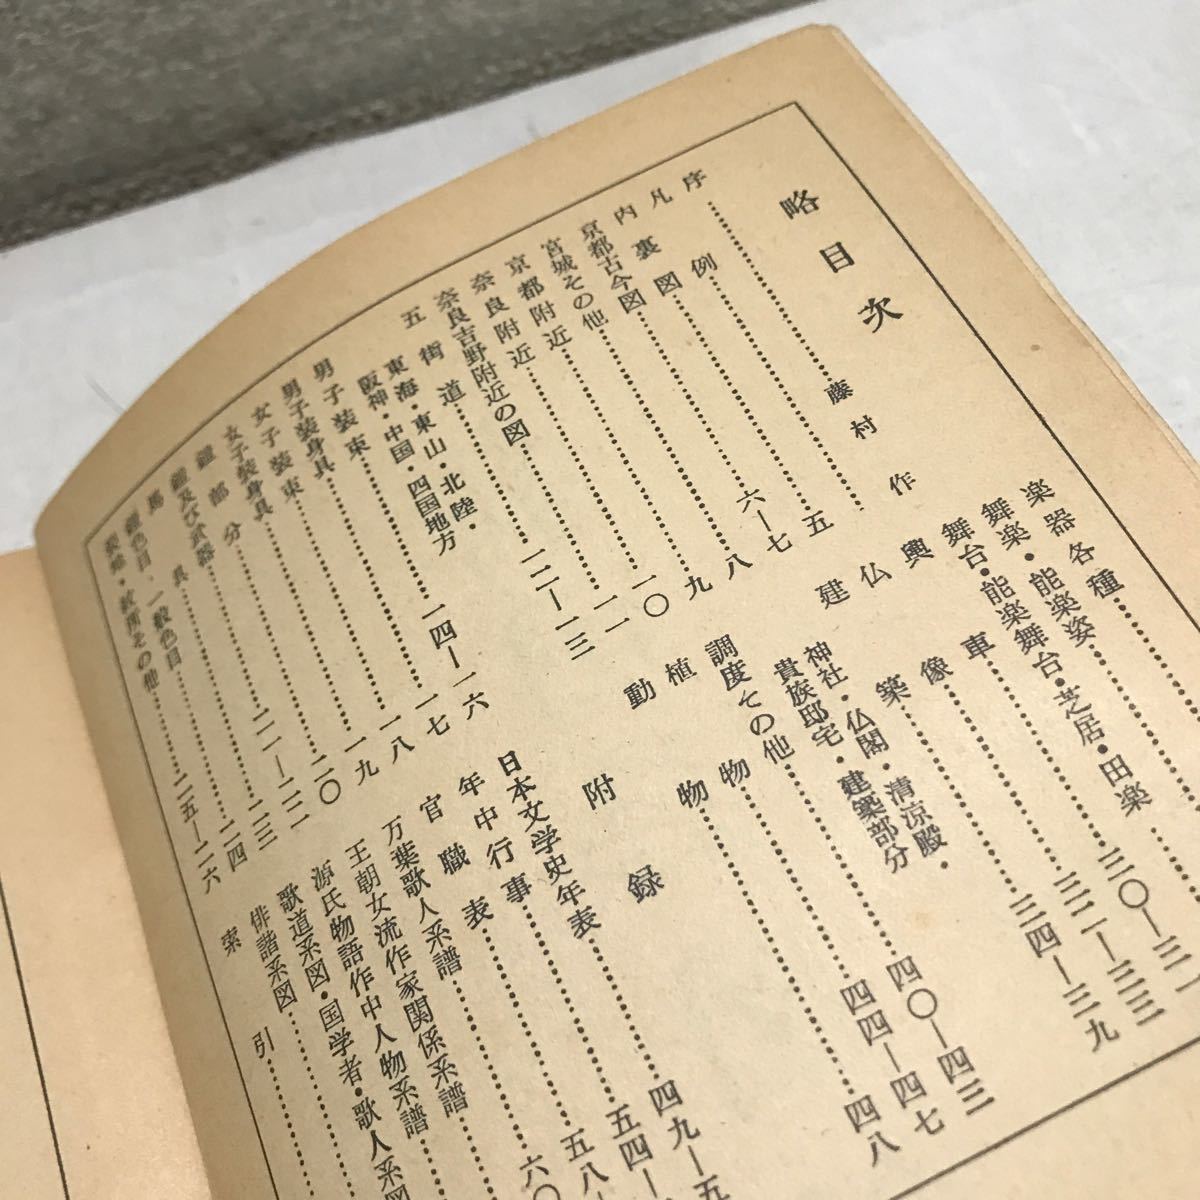 略目次
序……藤村作……五
凡例……六―七
内裏図……八
京都古今図……九
宮城その他……一〇
京都附近……一一
奈良附近
奈良吉野附近の図……一二―一三
五街道
東海・東山・北陸・
阪神・中国・四国地方……一四―一六
男子装束……一七
男子装身具……一八
女子装束……一九
女子装身具……二〇
鎧部分……二一―二二
鎧及び武器……二三
馬具……二四
一般色目……二五―二六
その他
楽器各種
舞楽・能楽姿……三〇―三一
舞台・能楽舞台・芝居・田楽……三二―三三
輿車……三四―三九
仏像
建築
神社・仏閣・清涼殿・
貴族邸宅・建築部分……四〇―四三
調度その他……四四―四七
植物
動物……四八
附録
日本文学史年表……四九―五
年中行事……五四―
官職表……五八―
万葉歌人系譜……六〇
王朝女流作家関係系譜
源氏物語作中人物系譜
歌道系図・国学者・歌人系図
俳諧系図
索引